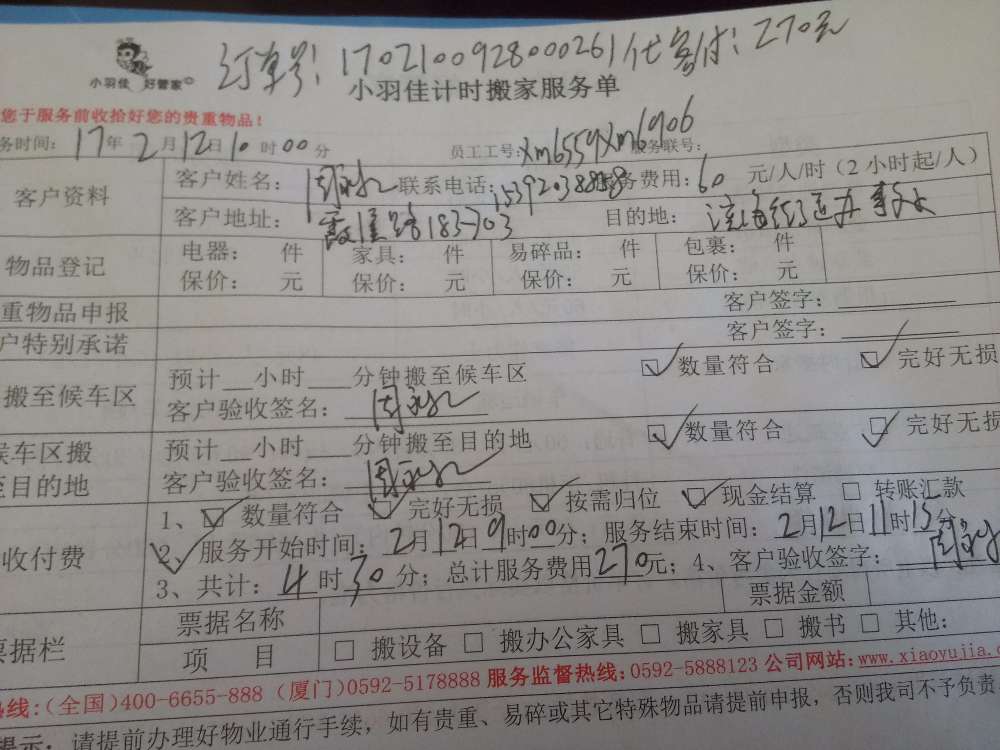 订单号：17021009280002 61 代客付：270元
小羽佳 好管家
小羽佳计时搬家服务单
您于服务前收拾好您的贵重物品！
务时间：17年2月12日10时00分 员工工号：xm6559 xm6906 服务联号：
客户资料 客户姓名：周 联系电话：务费用：60元/人/时（2小时起/人）
客户地址：霞 路183-703 目的地：
物品登记 电器：件 家具：件 易碎品：件 包裹：件
保价：元 保价：元 保价：元 保价：元
重物品申报 客户签字：
户特别承诺 客户签字：
搬至候车区 预计__小时___分钟搬至候车区 ☑数量符合 ☑完好无损
客户验收签名：周
候车区搬至目的地 预计__小时___分钟搬至目的地 ☑数量符合 ☑完好无损
客户验收签名：周
收付费 1、☑数量符合 ☑完好无损 ☑按需归位 ☑现金结算 □转账汇款
2、服务开始时间：2月12日9时00分；服务结束时间：2月12日11时15分
3、共计：4时30分；总计服务费用270元；4、客户验收签字：周
票据栏 票据名称 票据金额
项 目 □搬设备 □搬办公家具 □搬家具 □搬书 □其他：
热线：(全国)400-6655-888 (厦门)0592-5178888 服务监督热线：0592-5888123 公司网站：www.xiaoyujia.c
提示：请提前办理好物业通行手续，如有贵重、易碎或其它特殊物品请提前申报，否则我司不予负责